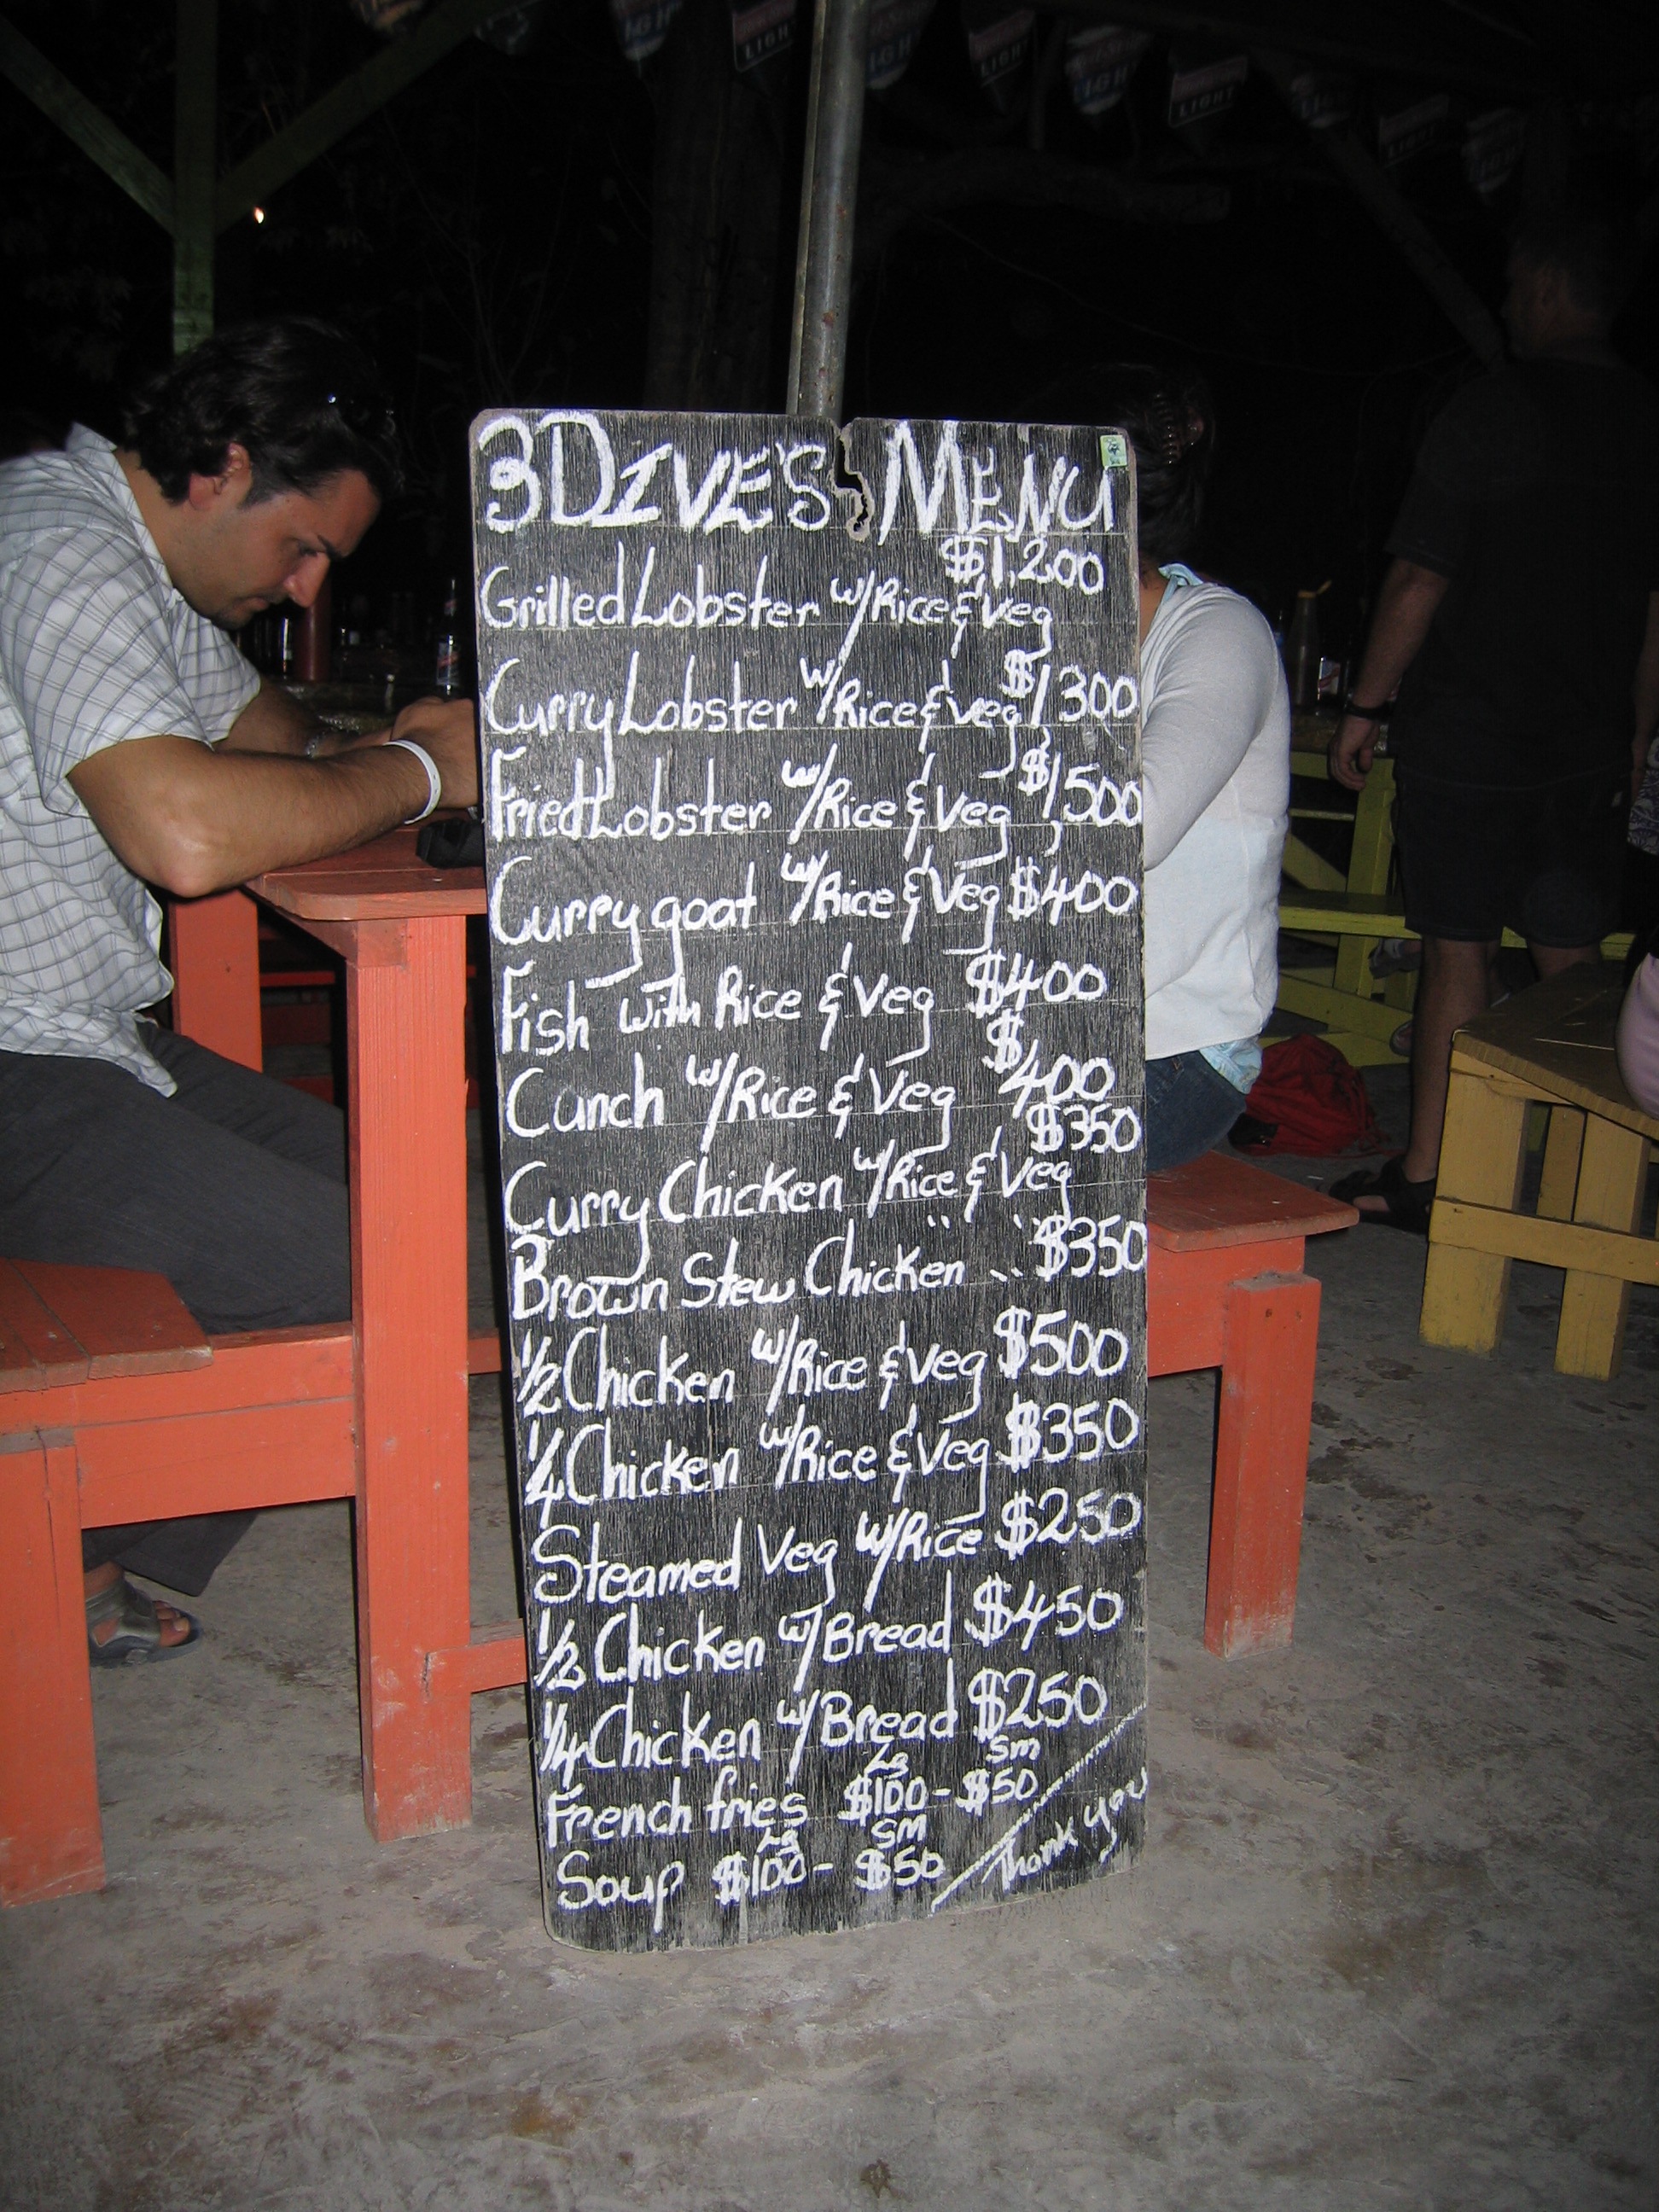 3DIVE'S MENU
$1,200
Grilled Lobster w/Rice & Veg
Curry Lobster w/Rice & Veg $1300
Fried Lobster w/Rice & Veg $1,500
Curry goat w/Rice & Veg $400
Fish with Rice & Veg $400
Cunch w/Rice & Veg $400
$350
Curry Chicken w/Rice & Veg
Brown Stew Chicken " " $350
1/2 Chicken w/Rice & Veg $500
1/4 Chicken w/Rice & Veg $350
Steamed Veg w/Rice $250
1/2 Chicken w/Bread $450
1/4 Chicken w/Bread $250
Lg Sm
French fries $100 - $50
Lg Sm
Soup $100 - $50
Thank you
LIGHT
LIGHT
LIGHT
LIGHT